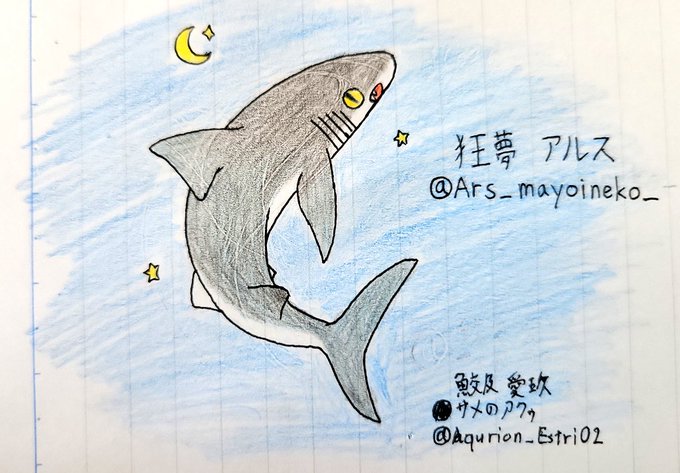 狂夢 アルス
@Ars_mayoineko_
鮫及 愛玖
サメのアクゥ
@Aqurion_Estri02